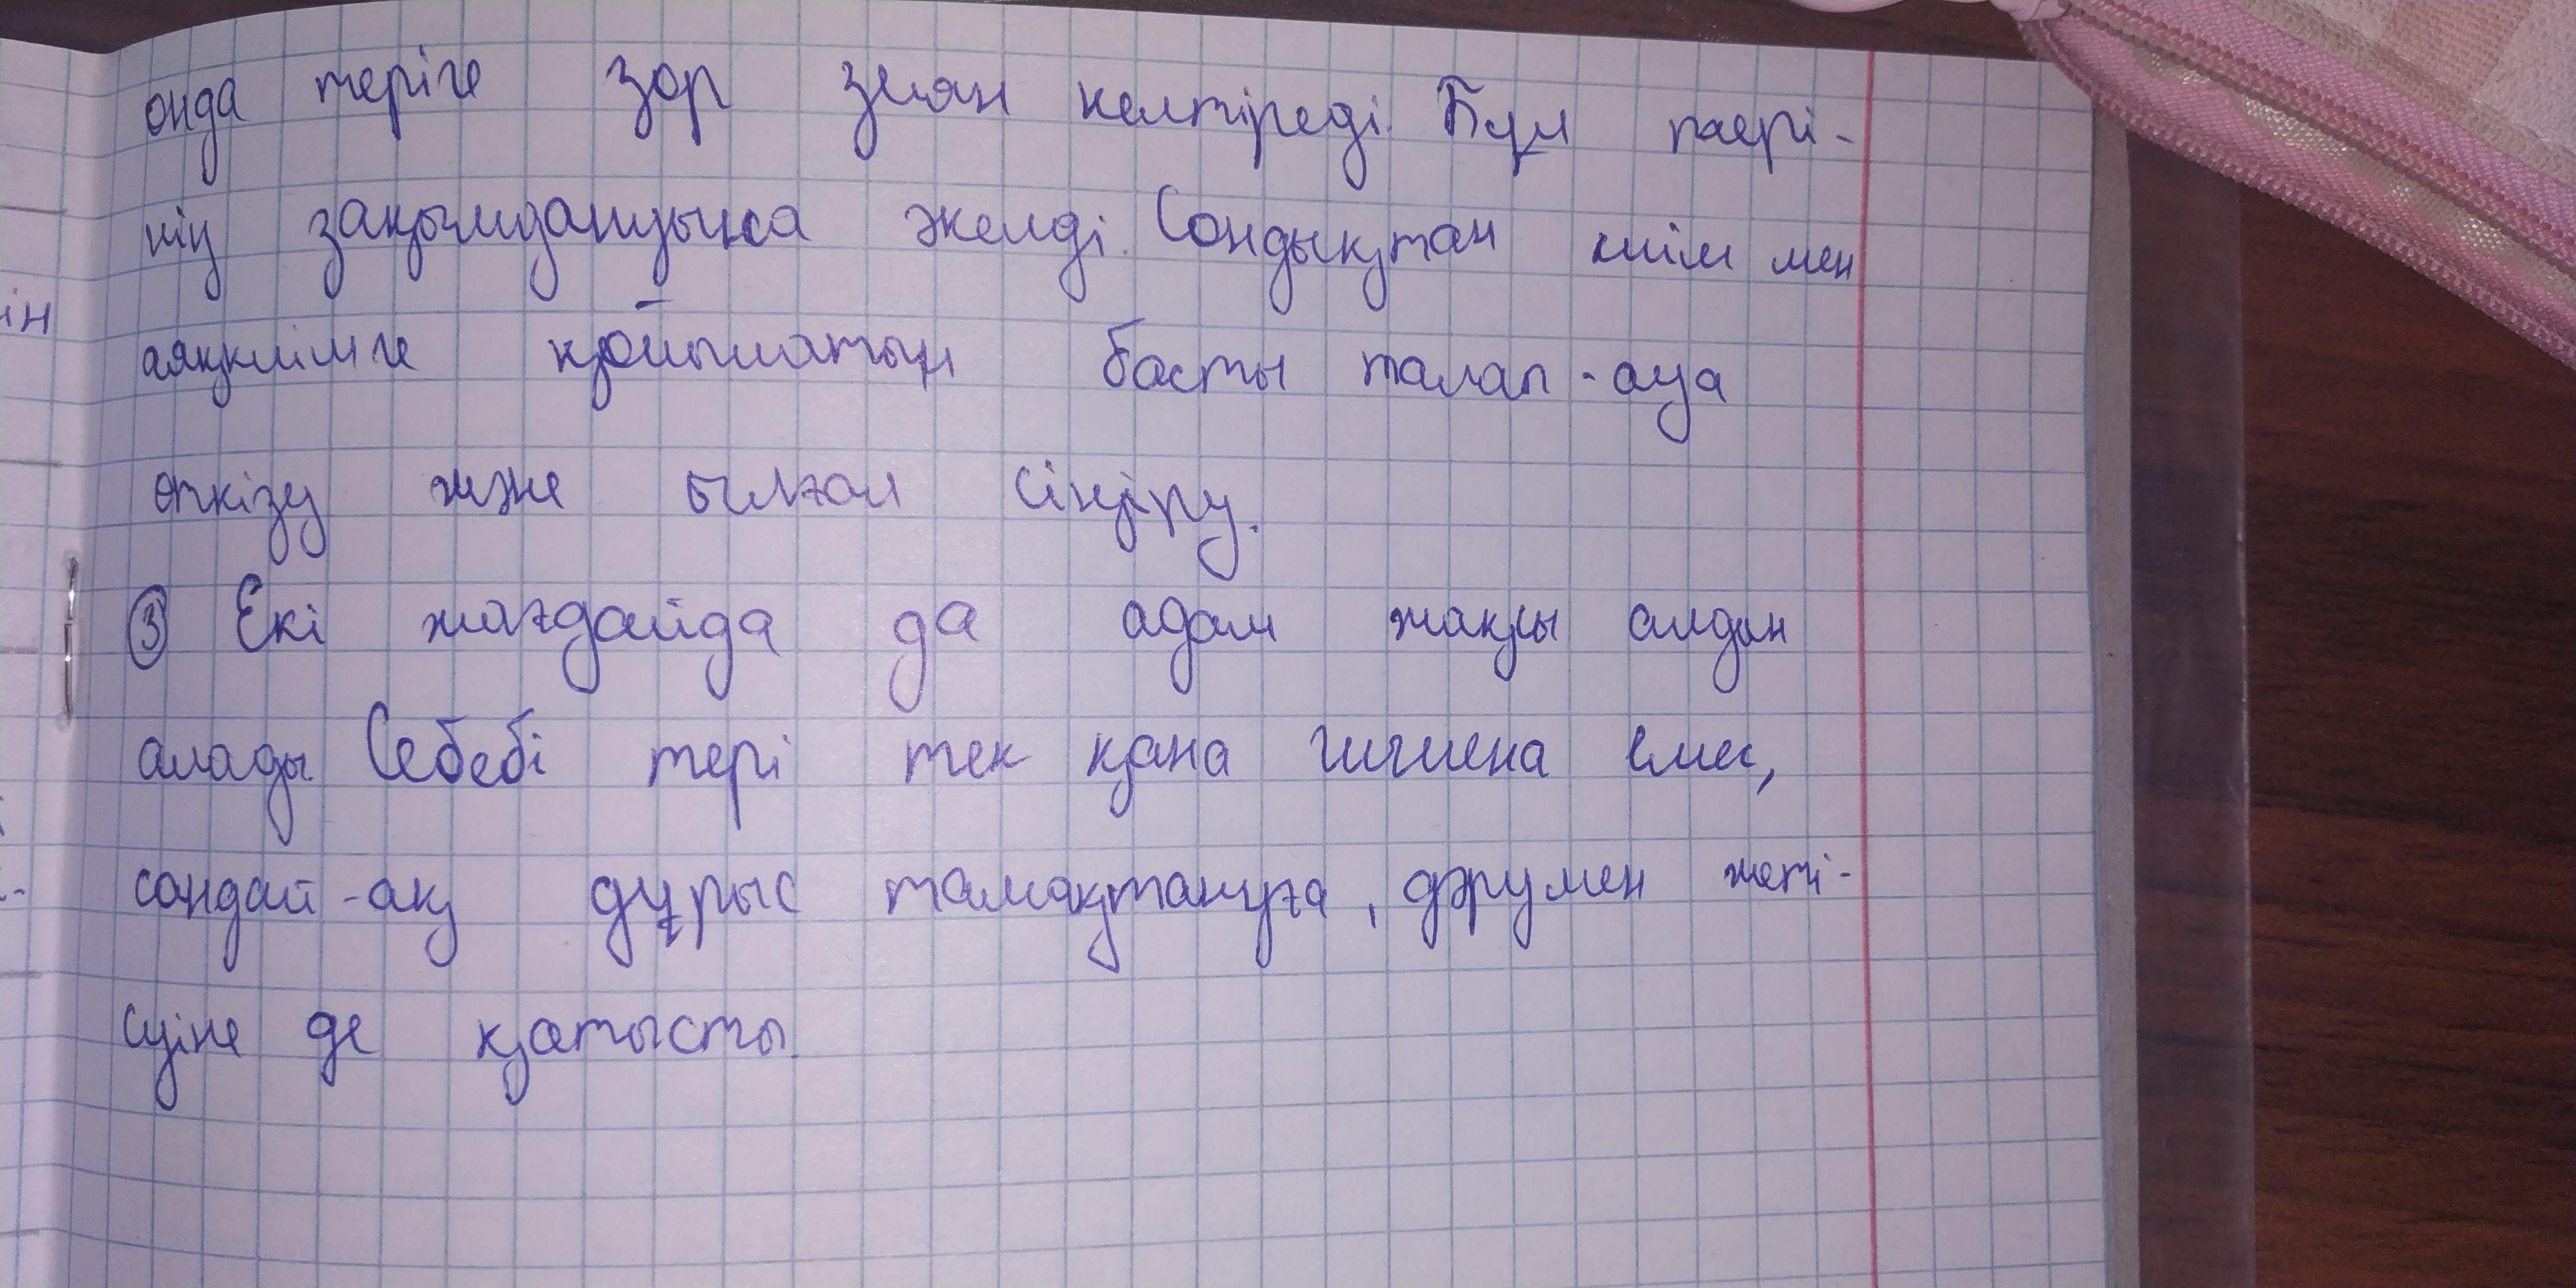 онда теріге зор зиян келтіреді. Бұл тері-
нің зақымдануына әкелді. Сондықтан киім мен
аяқкиімге қойылатын басты талап - ауа
өткізу және ылғал сіңіру.
③ Екі жағдайда да адам жақсы алдан
алады. Себебі тері тек қана гигиена емес,
сондай-ақ дұрыс тамақтануға, дәрумен жеті-
суіне де қатысты.
ін